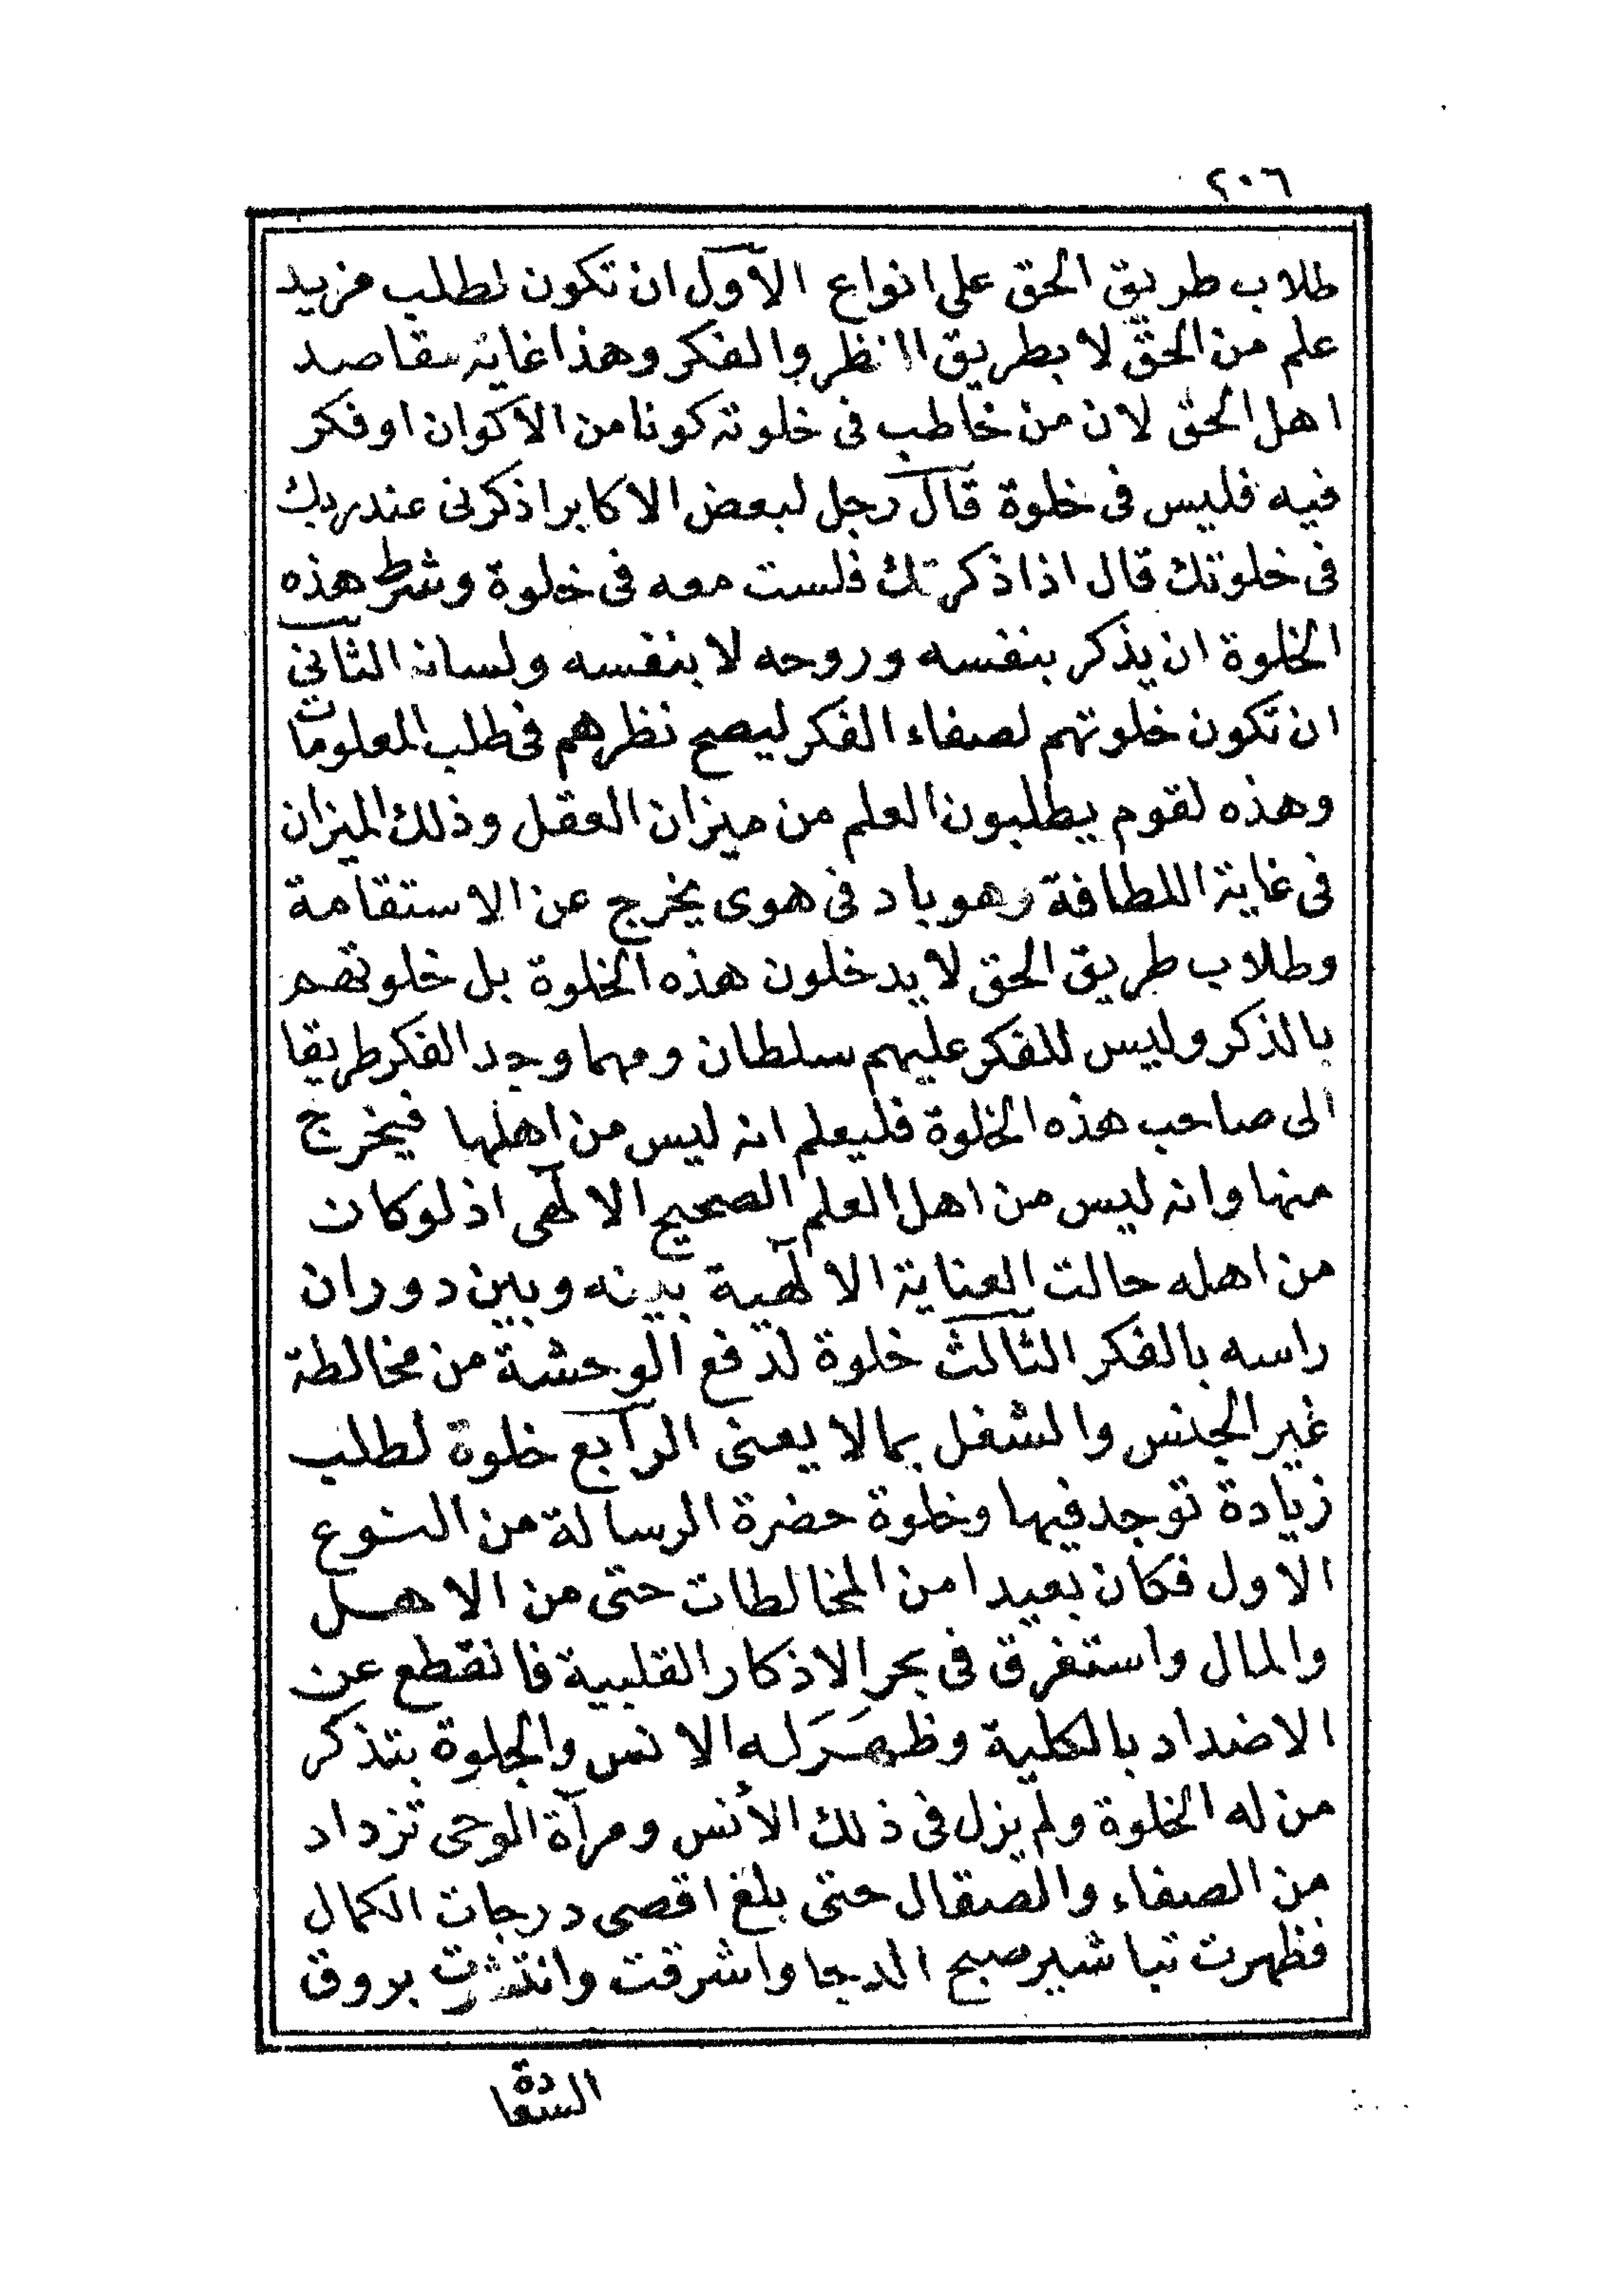 ٢٠٦
طلاب طريق الحق على انواع الآول ان تكون لطلب مزيد
علم من الحق لا بطريق النظر والفكر وهذا غاية مقاصد
اهل الحق لان من خاطب فى خلوته كونا من الاكوان او فكر
فيه فليس فى خلوة قال رجل لبعض الاكابر اذكرنى عند ربك
فى خلوتك قال اذا ذكرتك فلست معه فى خلوة وشرط هذه
الخلوة ان يذكر بنفسه وروحه لا بنفسه ولسانه الثانى
ان تكون خلوتهم لصفاء الفكر ليصح نظرهم فى طلب المعلومات
وهذه لقوم يطلبون العلم من ميزان العقل وذلك الميزان
فى غاية اللطافة وهو باد فى هوى يخرج عن الاستقامة
وطلاب طريق الحق لا يدخلون هذه الخلوة بل خلوتهم
بالذكر وليس للفكر عليهم سلطان ومهما وجد الفكر طريقا
الى صاحب هذه الخلوة فليعلم انه ليس من اهلها فيخرج
منها وانه ليس من اهل العلم الصحيح الالهى اذ لو كان
من اهله حالت العناية الالهية بينه وبين دوران
راسه بالفكر الثالث خلوة لدفع الوحشة من مخالطة
غير الجنس والشغل بما لا يعنى الرابع خلوة لطلب
زيادة توجد فيها وخلوة حضرة الرسالة من النوع
الاول فكان بعيدا من المخالطات حتى من الاهل
والمال واستغرق فى بحر الاذكار القلبية فانقطع عن
الاضداد بالكلية وظهَرَ له الانس والجلوة بتذكر
من له الخلوة ولم يزل فى ذلك الأنس ومرآة الوحى تزداد
من الصفاء والصقال حتى بلغ اقصى درجات الكمال
فظهرت تباشير صبح الدجا واشرقت وانتشرت بروق
السعادة